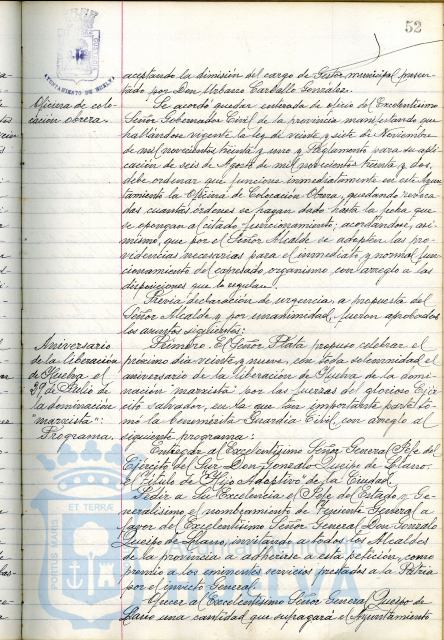 52
AYUNTAMIENTO DE HUELVA
aceptando la dimisión del cargo de Gestor municipal presen-
tado por Don Urbano Carballo González.
Oficina de colo-
cación obrera.
Se acordó quedar enterada de oficio del Excelentísimo
Señor Gobernador Civil de la provincia manifestando que
hallándose vigente la ley de veinte y siete de Noviembre
de mil novecientos treinta y uno y Reglamento para su apli-
cación de seis de Agosto de mil novecientos treinta y dos,
debe ordenar que funcione inmediatamente en este Ayun-
tamiento la Oficina de Colocación Obrera, quedando revoca-
das cuantas órdenes se hayan dado hasta la fecha que
se opongan al citado funcionamiento, acordándose, asi-
mismo, que por el Señor Alcalde se adopten las pro-
videncias necesarias para el inmediato y normal fun-
cionamiento del expresado organismo con arreglo a las
disposiciones que lo regulan.
Previa declaración de urgencia, a propuesta del
Señor Alcalde y por unanimidad, fueron aprobados
los asuntos siguientes:
Aniversario
de la liberación
de Huelva el
29 de Julio de
la dominación
marxista.
Programa.
Primero. El Señor Plata propuso celebrar el
próximo día veinte y nueve, con toda solemnidad el
aniversario de la liberación de Huelva de la domi-
nación "marxista" por las fuerzas del glorioso Ejér-
cito salvador, en la que tan importante parte to-
mó la benemérita Guardia Civil con arreglo al
siguiente programa:
Entregar al Excelentísimo Señor General Jefe del
Ejército del Sur Don Gonzalo Queipo de Llano
el título de "Hijo Adoptivo" de la Ciudad.
Pedir a Su Excelencia el Jefe del Estado y Ge-
neralísimo el nombramiento de Teniente General a
favor del Excelentísimo Señor General Don Gonzalo
Queipo de Llano, invitando a todos los Alcaldes
de la provincia a adherirse a esta petición, como
premio a los eminentes servicios prestados a la Patria
por el invicto General.
Ofrecer al Excelentísimo Señor General Queipo de
Llano una cantidad que sufragará el Ayuntamiento
PORTUS MARIS ET TERRAE
HUELVA